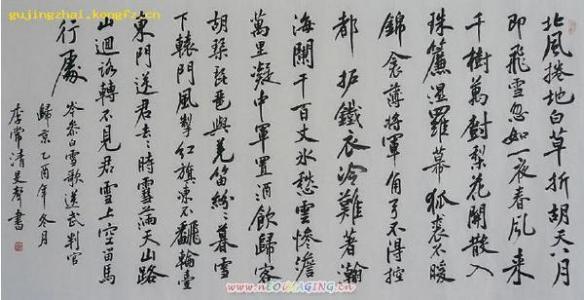 gujingzhai.kongfz.cn
北風捲地白草折胡天八月
即飛雪忽如一夜春風来
千樹萬樹梨花開散入
珠簾濕羅幕狐裘不暖
錦衾薄將軍角弓不得控
都护鐵衣冷難著瀚
海闌干百丈冰愁雲惨澹
萬里凝中軍置酒飲歸客
胡琴琵琶與羌笛紛〻暮雪
下轅門風掣紅旗凍不翻輪臺
東門送君去〻時雪滿天山路
山迴路轉不見君雪上空留馬
行處
岑參白雪歌送武判官
歸京乙酉年冬月
李常清書
www.NEOIMAGING.cn